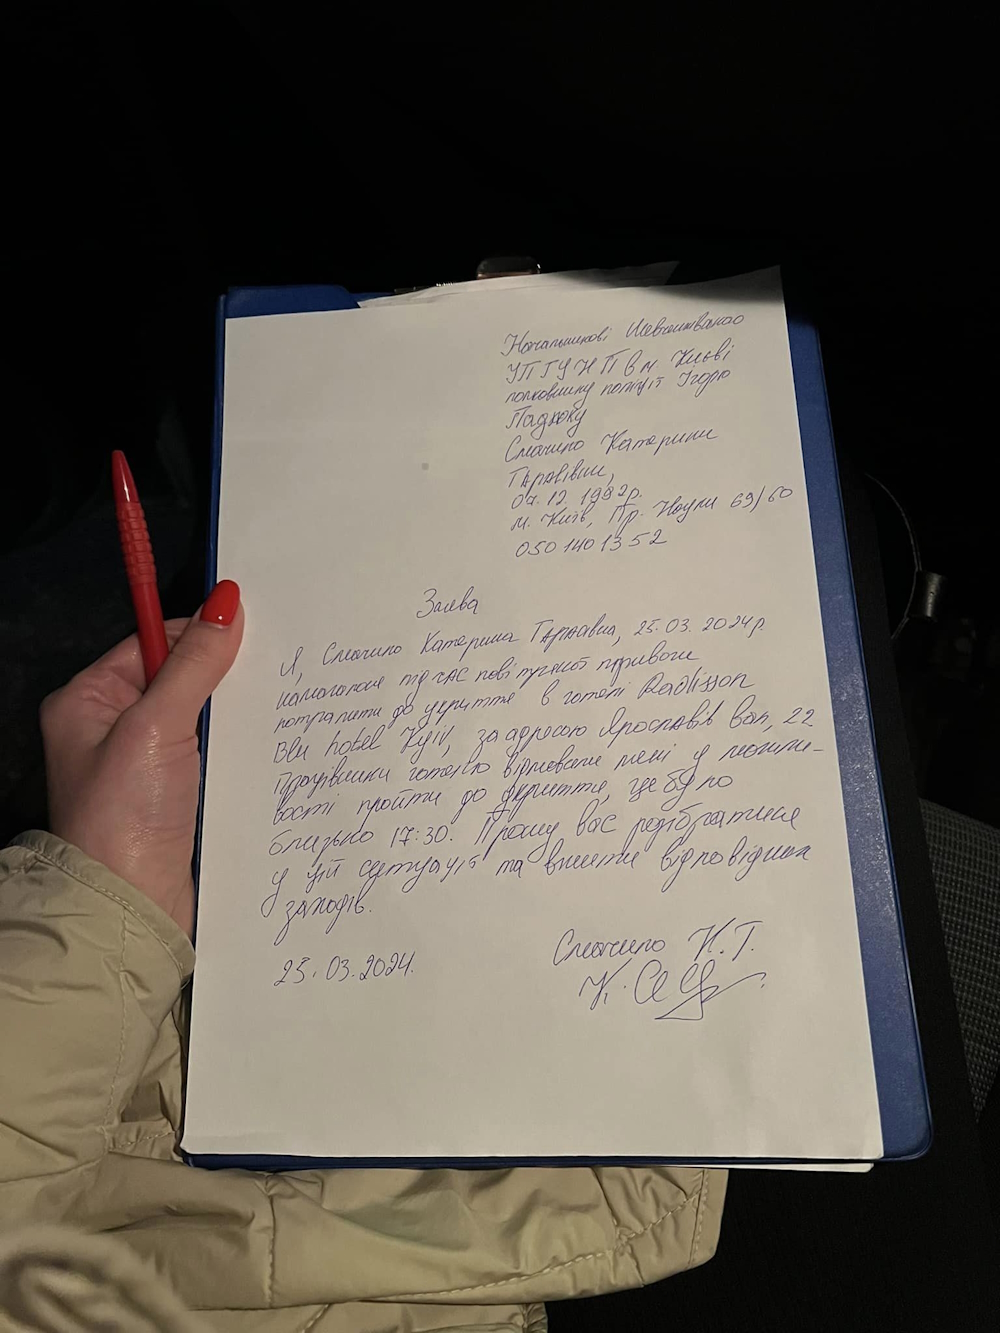 Начальникові Шевченківського
УП ГУНП в м. Києві
полковнику поліції Ігорю
Падюку
Смочило Катерини
Тарасівни,
07.12.1992р.
м. Київ, Пр. Науки 69/60
050 140 13 52
Заява
Я, Смочило Катерина Тарасівна, 25.03.2024р.
намагалася під час повітряної тривоги
потрапити до укриття в готелі Radisson
Blu hotel Kyiv, за адресою Ярославів вал, 22
Працівники готелю відмовили мені у можли-
вості пройти до укриття, це було
близько 17:30. Прошу вас розібратися
у цій ситуації та вжити відповідних
заходів.
25.03.2024.
Смочило К.Т.